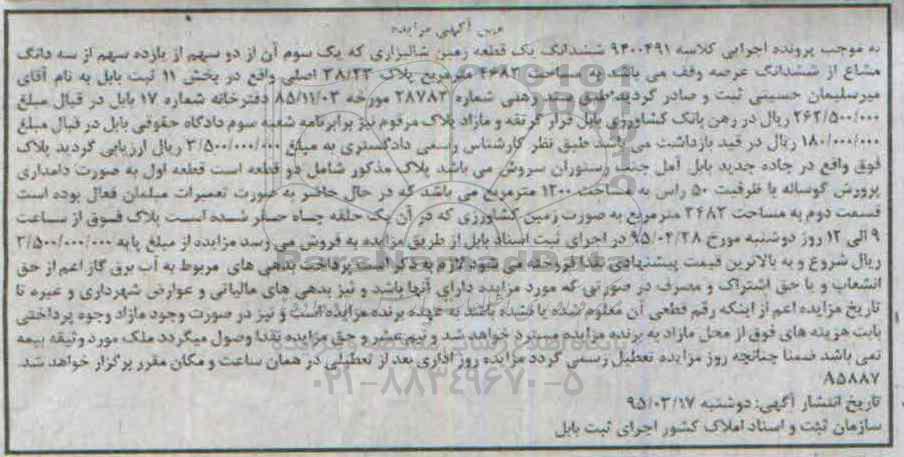 متن آگهی مزایده
به موجب پرونده اجرایی کلاسه ۹۴۰۰۴۹۱ ششدانگ یک قطعه زمین شالیزاری که یک سوم آن از دو سهم از یازده سهم از سه دانگ
مشاع از ششدانگ عرصه وقف می باشد به مساحت ۴۶۸۲ مترمربع پلاک ۲۸/۲۳ اصلی واقع در بخش ۱۱ ثبت بابل به نام آقای
میرسلیمان حسینی ثبت و صادر گردیده طبق سند رهنی شماره ۲۸۷۸۲ مورخه ۸۵/۱۱/۰۳ دفترخانه شماره ۱۷ بابل در قبال مبلغ
۲۶۲/۵۰۰/۰۰۰ ریال در رهن بانک کشاورزی بابل قرار گرفته و مازاد پلاک مرقوم نیز برابر نامه شعبه سوم دادگاه حقوقی بابل در قبال مبلغ
۱۸۰/۰۰۰/۰۰۰ ریال در قید بازداشت می باشد طبق نظر کارشناس رسمی دادگستری به مبلغ ۳/۵۰۰/۰۰۰/۰۰۰ ریال ارزیابی گردید پلاک
فوق واقع در جاده جدید بابل آمل جنب رستوران سروش می باشد پلاک مذکور شامل دو قطعه است قطعه اول به صورت دامداری
پرورش گوساله با ظرفیت ۵۰ راس به مساحت ۱۲۰۰ مترمربع می باشد که در حال حاضر به صورت تعمیرات مبلمان فعال بوده است
قسمت دوم به مساحت ۳۴۸۲ مترمربع به صورت زمین کشاورزی که در آن یک حلقه چاه حفر شده است پلاک فوق از ساعت
۹ الی ۱۲ روز دوشنبه مورخ ۹۵/۰۴/۲۸ در اجرای ثبت اسناد بابل از طریق مزایده به فروش می رسد مزایده از مبلغ پایه ۳/۵۰۰/۰۰۰/۰۰۰
ریال شروع و به بالاترین قیمت پیشنهادی نقدا فروخته می شود لازم به ذکر است پرداخت بدهی های مربوط به آب برق گاز اعم از حق
انشعاب و یا حق اشتراک و مصرف در صورتی که مورد مزایده دارای آنها باشد و نیز بدهی های مالیاتی و عوارض شهرداری و غیره تا
تاریخ مزایده اعم از اینکه رقم قطعی آن معلوم شده یا نشده باشد به عهده برنده مزایده است و نیز در صورت وجود مازاد وجوه پرداختی
بابت هزینه های فوق از محل مازاد به برنده مزایده مسترد خواهد شد و نیم عشر و حق مزایده نقدا وصول میگردد ملک مورد وثیقه بیمه
نمی باشد ضمنا چنانچه روز مزایده تعطیل رسمی گردد مزایده روز اداری بعد از تعطیلی در همان ساعت و مکان مقرر برگزار خواهد شد.
۹۵۸۸۷
تاریخ انتشار آگهی: دوشنبه ۹۵/۰۳/۱۷
سازمان ثبت و اسناد املاک کشور اجرای ثبت بابل
ParsNamadData
۰۲۱-۸۸۳۴۹۶۷۰-۵